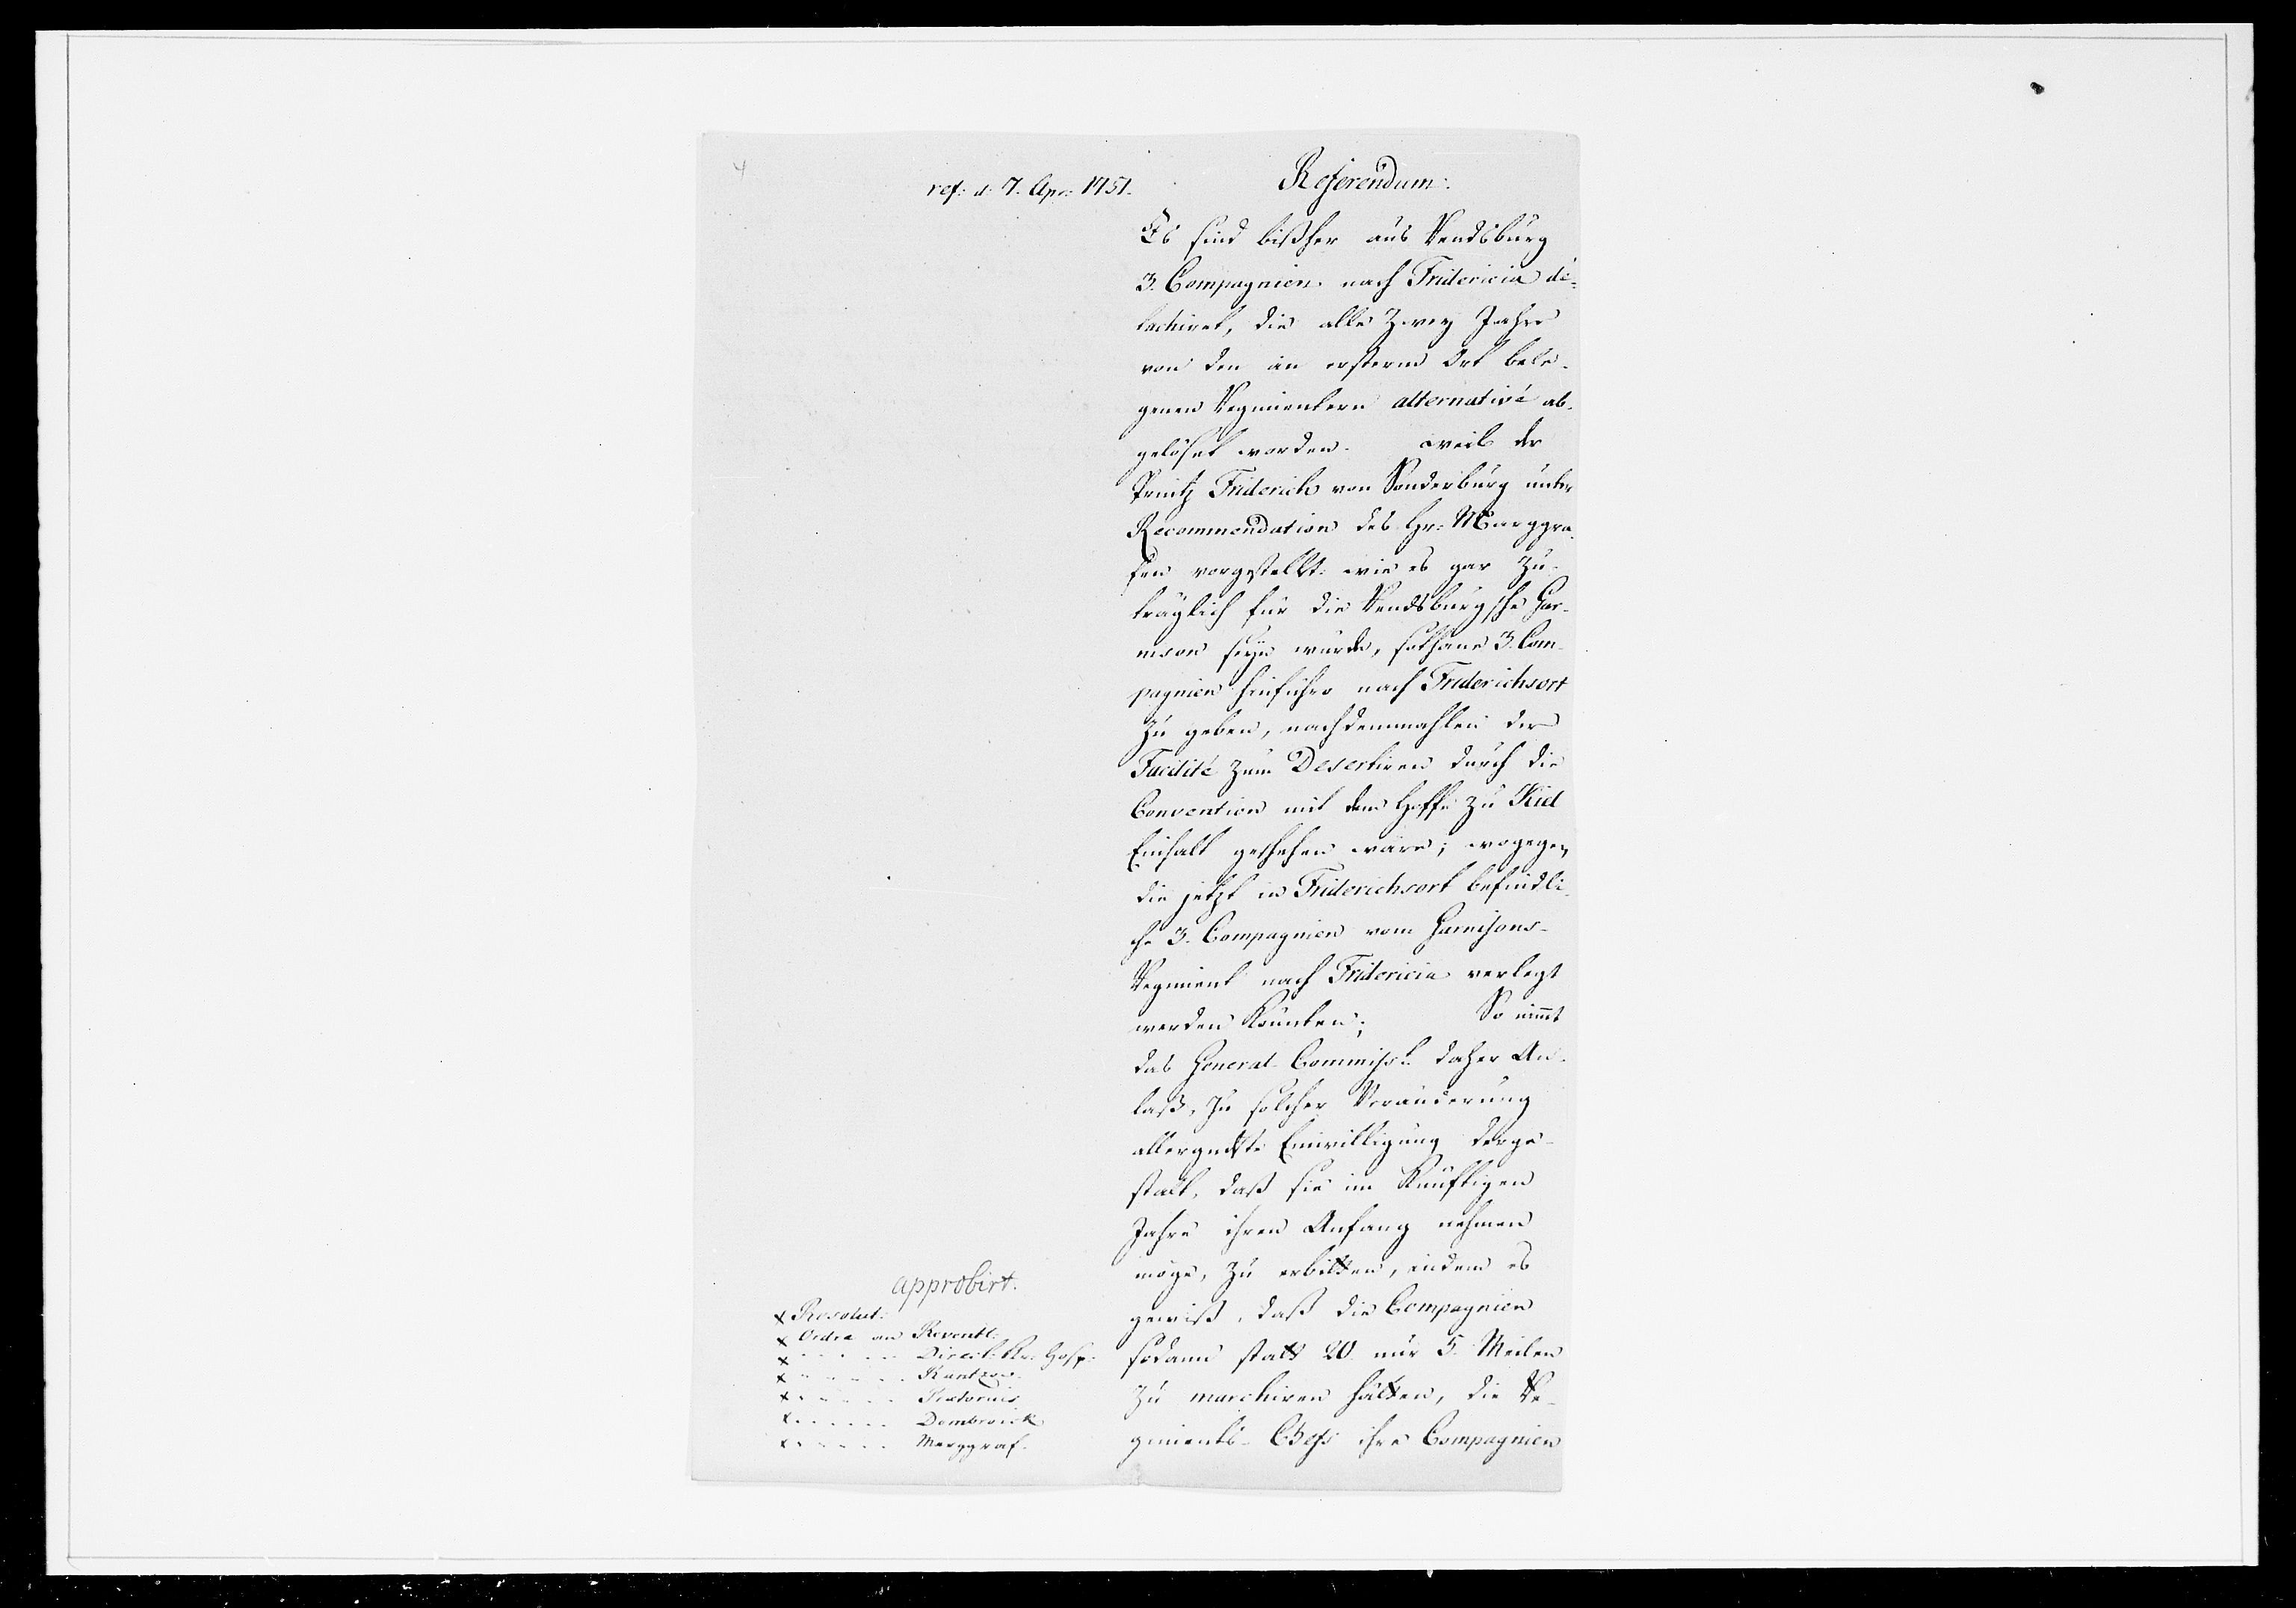 4
ref: d. 7. Apr: 1751.
Referendum.
Es sind bißher aus Rendsburg
3. Compagnien nach Fridericia de-
tachiret, die alle zwey Jahre
von den an ersterm Ort bele-
genen Regimentern alternativé ab-
gelöset worden. Weil der
Printz Friderich von Sonderburg unter
Recommendation des Hr: Marggra-
fen vorgestellt: wie es gar zu-
träglich für die Rendsburgsche Gar-
nison seyn würde, sothane 3. Com-
pagnien hinführo nach Friderichsort
zu geben, nachdemmahlen der
Facilité zum Desertiren durch die
Convention mit dem Hoffe zu Kiel
Einhalt geschehen wäre; wogegen
die jetzt in Friderichsort befindli-
che 3. Compagnien vom Garnisons-
Regiment nach Fridericia verlegt
werden könnten; So nimmt
das General-Commiss:t daher An-
laß, zu solcher Veränderung
allergndste Einwilligung derge-
stalt, daß sie im künftigen
Jahre ihren Anfang nehmen
möge, zu erbitten, indem es
gewiß, daß die Compagnien
sodann statt 20. nur 5. Meilen
zu marchiren hätten, die Re-
giments-Chefs ihre Compagnien
approbirt.
x Resolut:
x Ordre an Reventl:
x - - - - - Direct: Kr: Hosp:
x - - - - - Rantzow.
x - - - - - Pretorius
x - - - - - Dombroick
x - - - - - Marggraf.